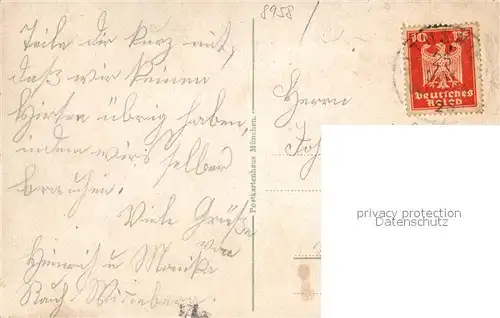 8958
Teile dir kurz mit,
daß wir keinen
Hirsen übrig haben,
indem wir's selber
brauchen.
Viele Grüße
von
Heinrich u Monika
Rauch
Postkartenhaus München.
10 Pf
Deutsches
Reich
Herrn
Joh
privacy protection
Datenschutz